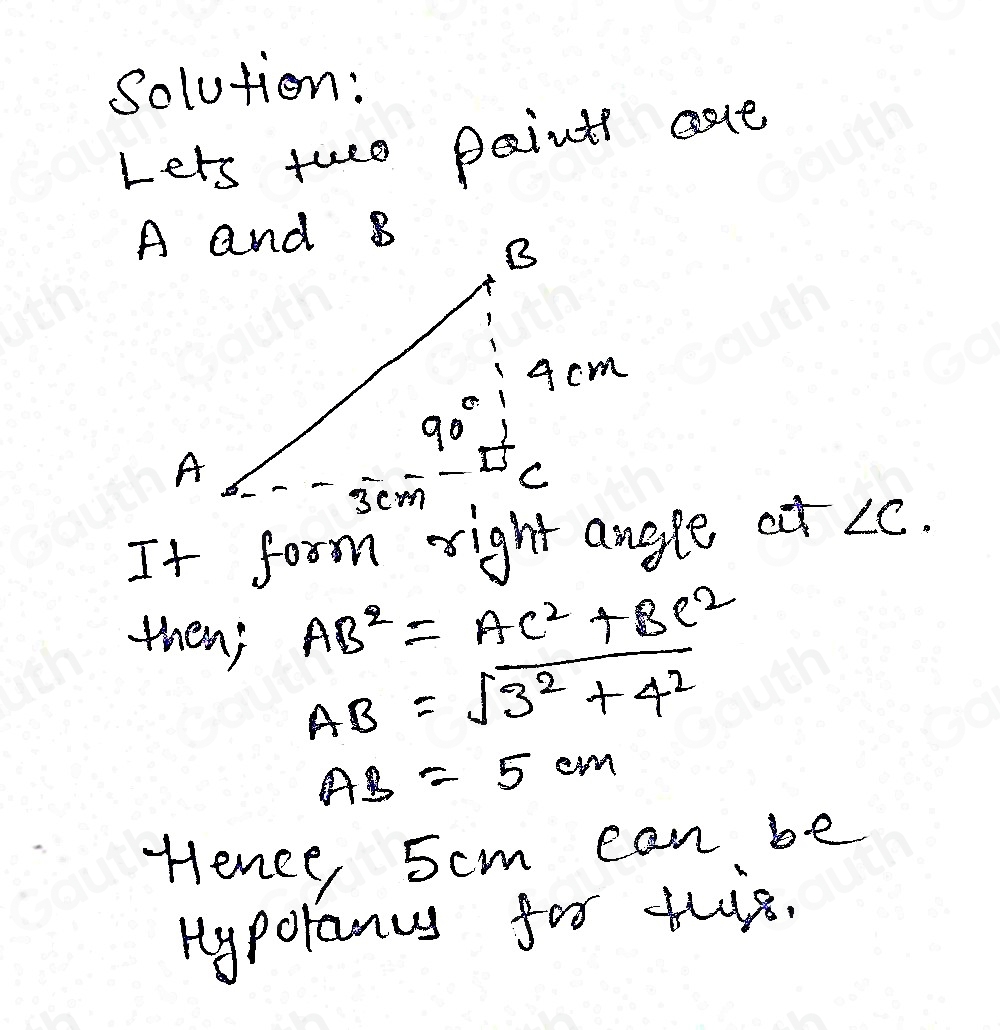 Solution:
Lets two points are
A and B
B
4cm
90°
A
C
3cm
It form right angle at ∠C.
then; AB² = AC² + BC²
AB = √3² + 4²
AB = 5 cm
Hence, 5cm can be
Hypotanus for this.